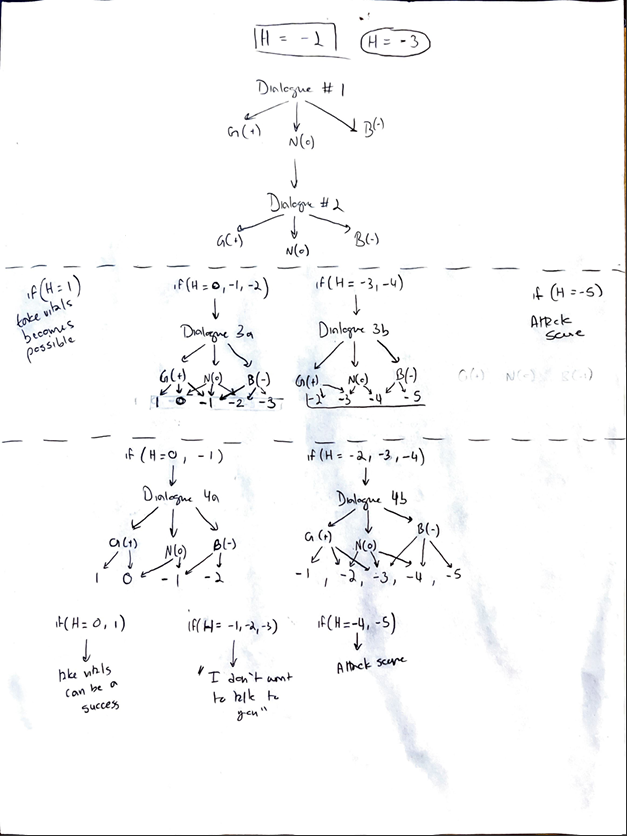 H = -2 H = -3
Dialogue #1
G(+) N(0) B(-)
Dialogue #2
G(+) N(0) B(-)
if (H=1) if (H=0, -1, -2) if (H= -3, -4) if (H=-5)
take vitals
becomes
possible
Attack
scene
Dialogue 3a Dialogue 3b
G(+) N(0) B(-) G(+) N(0) B(-) G(+) N(0)
1 0 -1 -2 -3 -2 -3 -4 -5
if (H=0, -1) if (H= -2, -3, -4)
Dialogue 4a Dialogue 4b
G(+) N(0) B(-) G(+) N(0) B(-)
1 0 -1 -2 -1, -2, -3, -4, -5
if(H=0, 1) if(H= -1, -2, -3) if(H=-4, -5)
take vitals
can be a
success
"I don't want
to talk to
you"
Attack scene